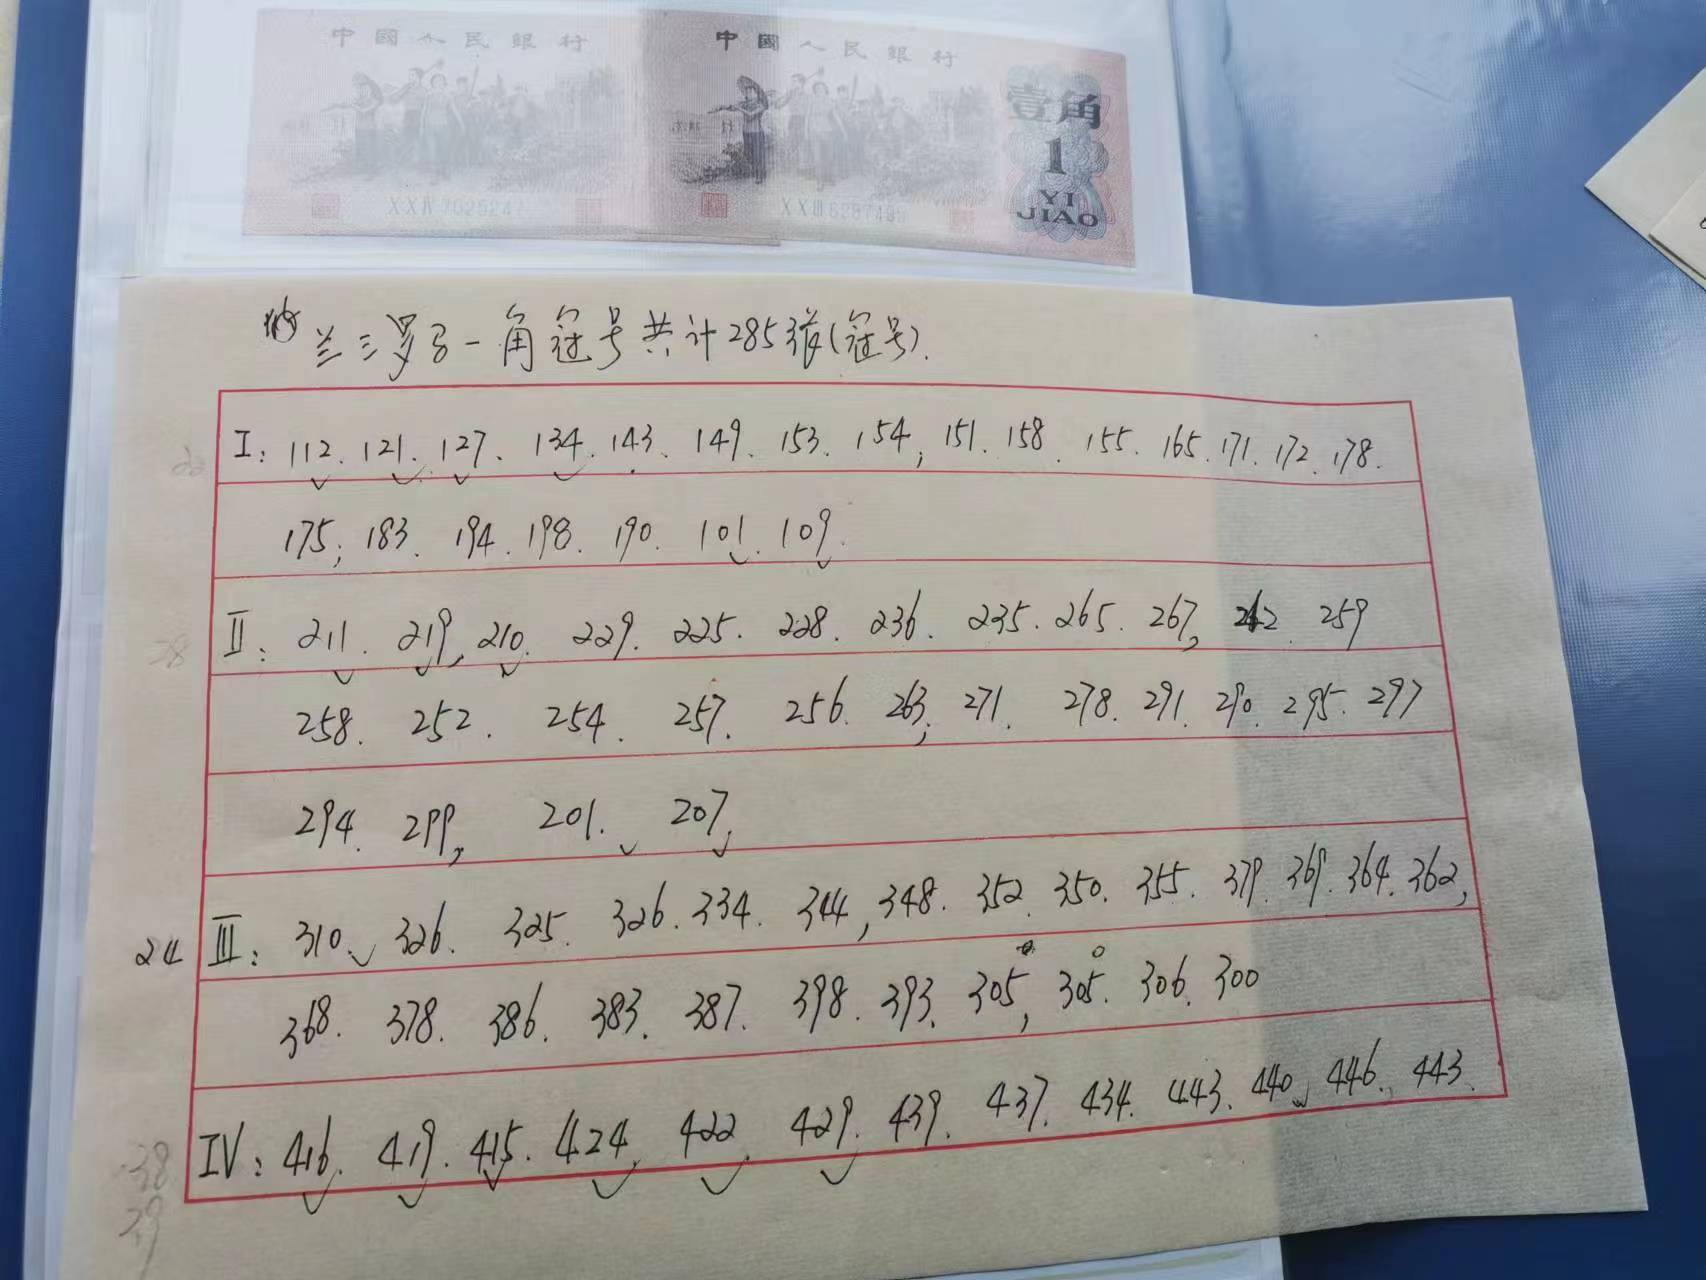 中國人民銀行 中國人民銀行
壹角
1
YI
JIAO
7025247 XXIII 6287493
兰三罗马一角冠号共计285张(冠号).
I: 112. 121. 127. 134. 143. 149. 153. 154; 151. 158. 155. 165. 171. 172. 178.
175; 183. 194. 198. 190. 101. 109.
28
II: 211. 219, 210. 229. 225. 228. 236. 235. 265. 267, 262. 259
258. 252. 254. 257. 256. 263; 271. 278. 291. 290. 295. 297
294. 299, 201. 207,
24 III: 310. 326. 325. 326. 334. 344, 348. 352. 350. 355. 379. 369. 364. 362,
368. 378. 386. 383. 387. 398. 393. 305, 305. 306. 300
IV: 416. 419. 415. 424. 422. 429. 439. 437. 434. 443. 440. 446. 443.
38
29